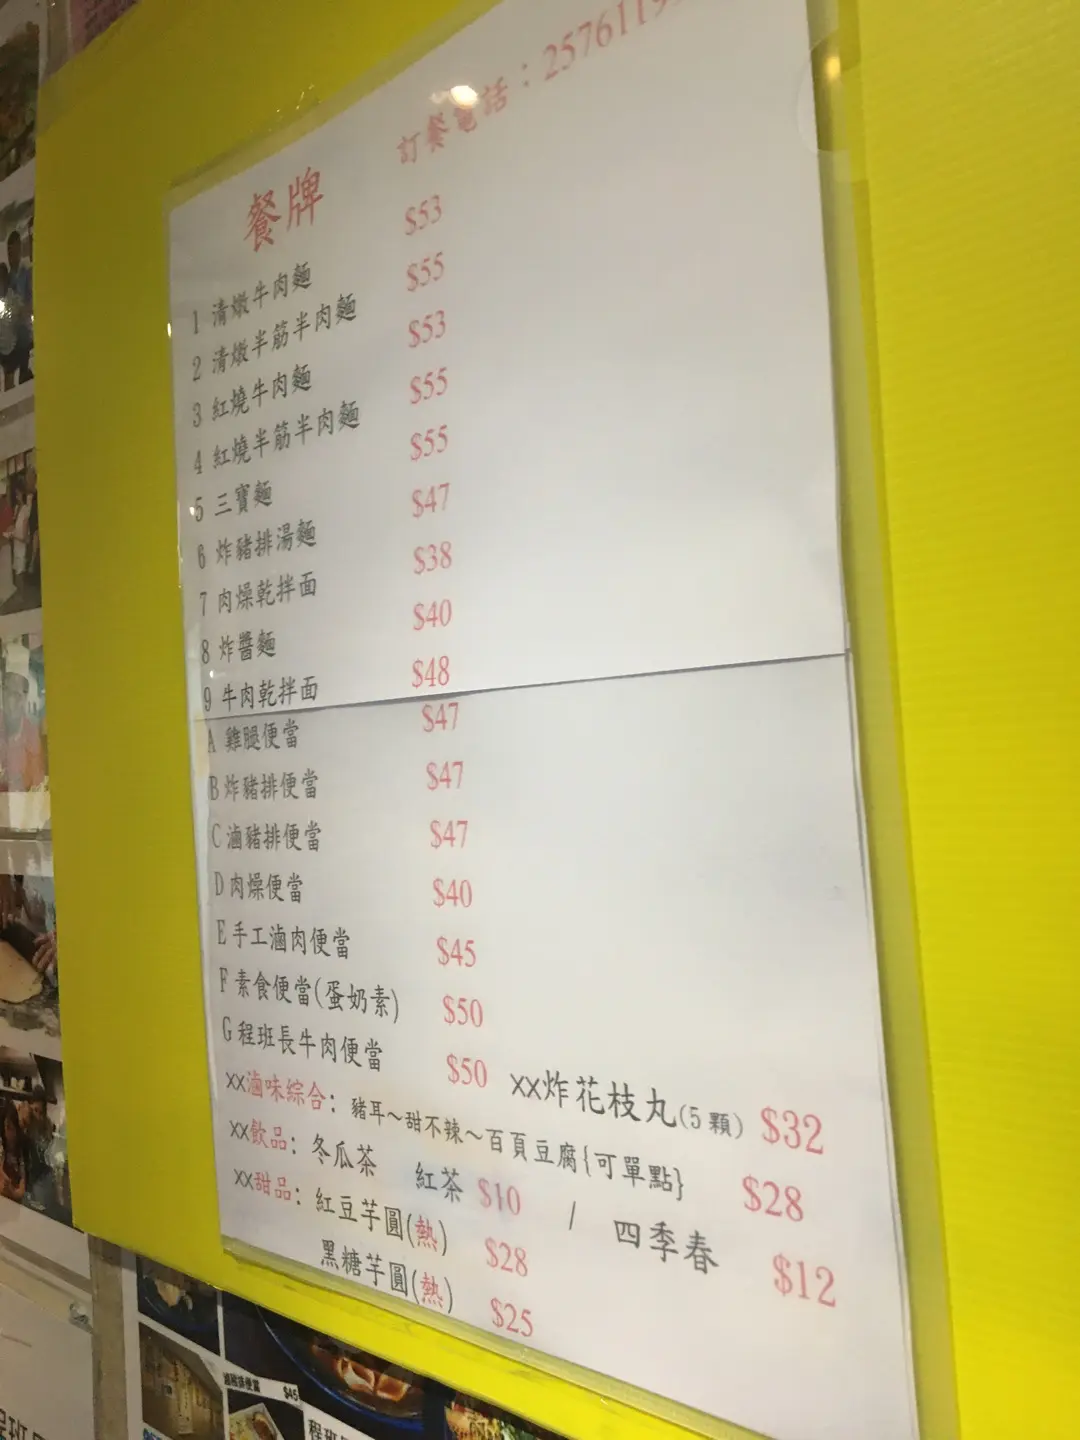 餐牌 訂餐電話：
1 清燉牛肉麵 $53
2 清燉半筋半肉麵 $55
3 紅燒牛肉麵 $53
4 紅燒半筋半肉麵 $55
5 三寶麵 $55
6 炸豬排湯麵 $47
7 肉燥乾拌面 $38
8 炸醬麵 $40
9 牛肉乾拌面 $48
A 雞腿便當 $47
B 炸豬排便當 $47
C 滷豬排便當 $47
D 肉燥便當 $40
E 手工滷肉便當 $45
F 素食便當(蛋奶素) $50
G 程班長牛肉便當 $50
XX炸花枝丸(5顆) $32
XX滷味綜合: 豬耳～甜不辣～百頁豆腐{可單點} $28
XX飲品: 冬瓜茶 紅茶 $10 / 四季春 $12
XX甜品: 紅豆芋圓(熱) $28
黑糖芋圓(熱) $25
$45
程班